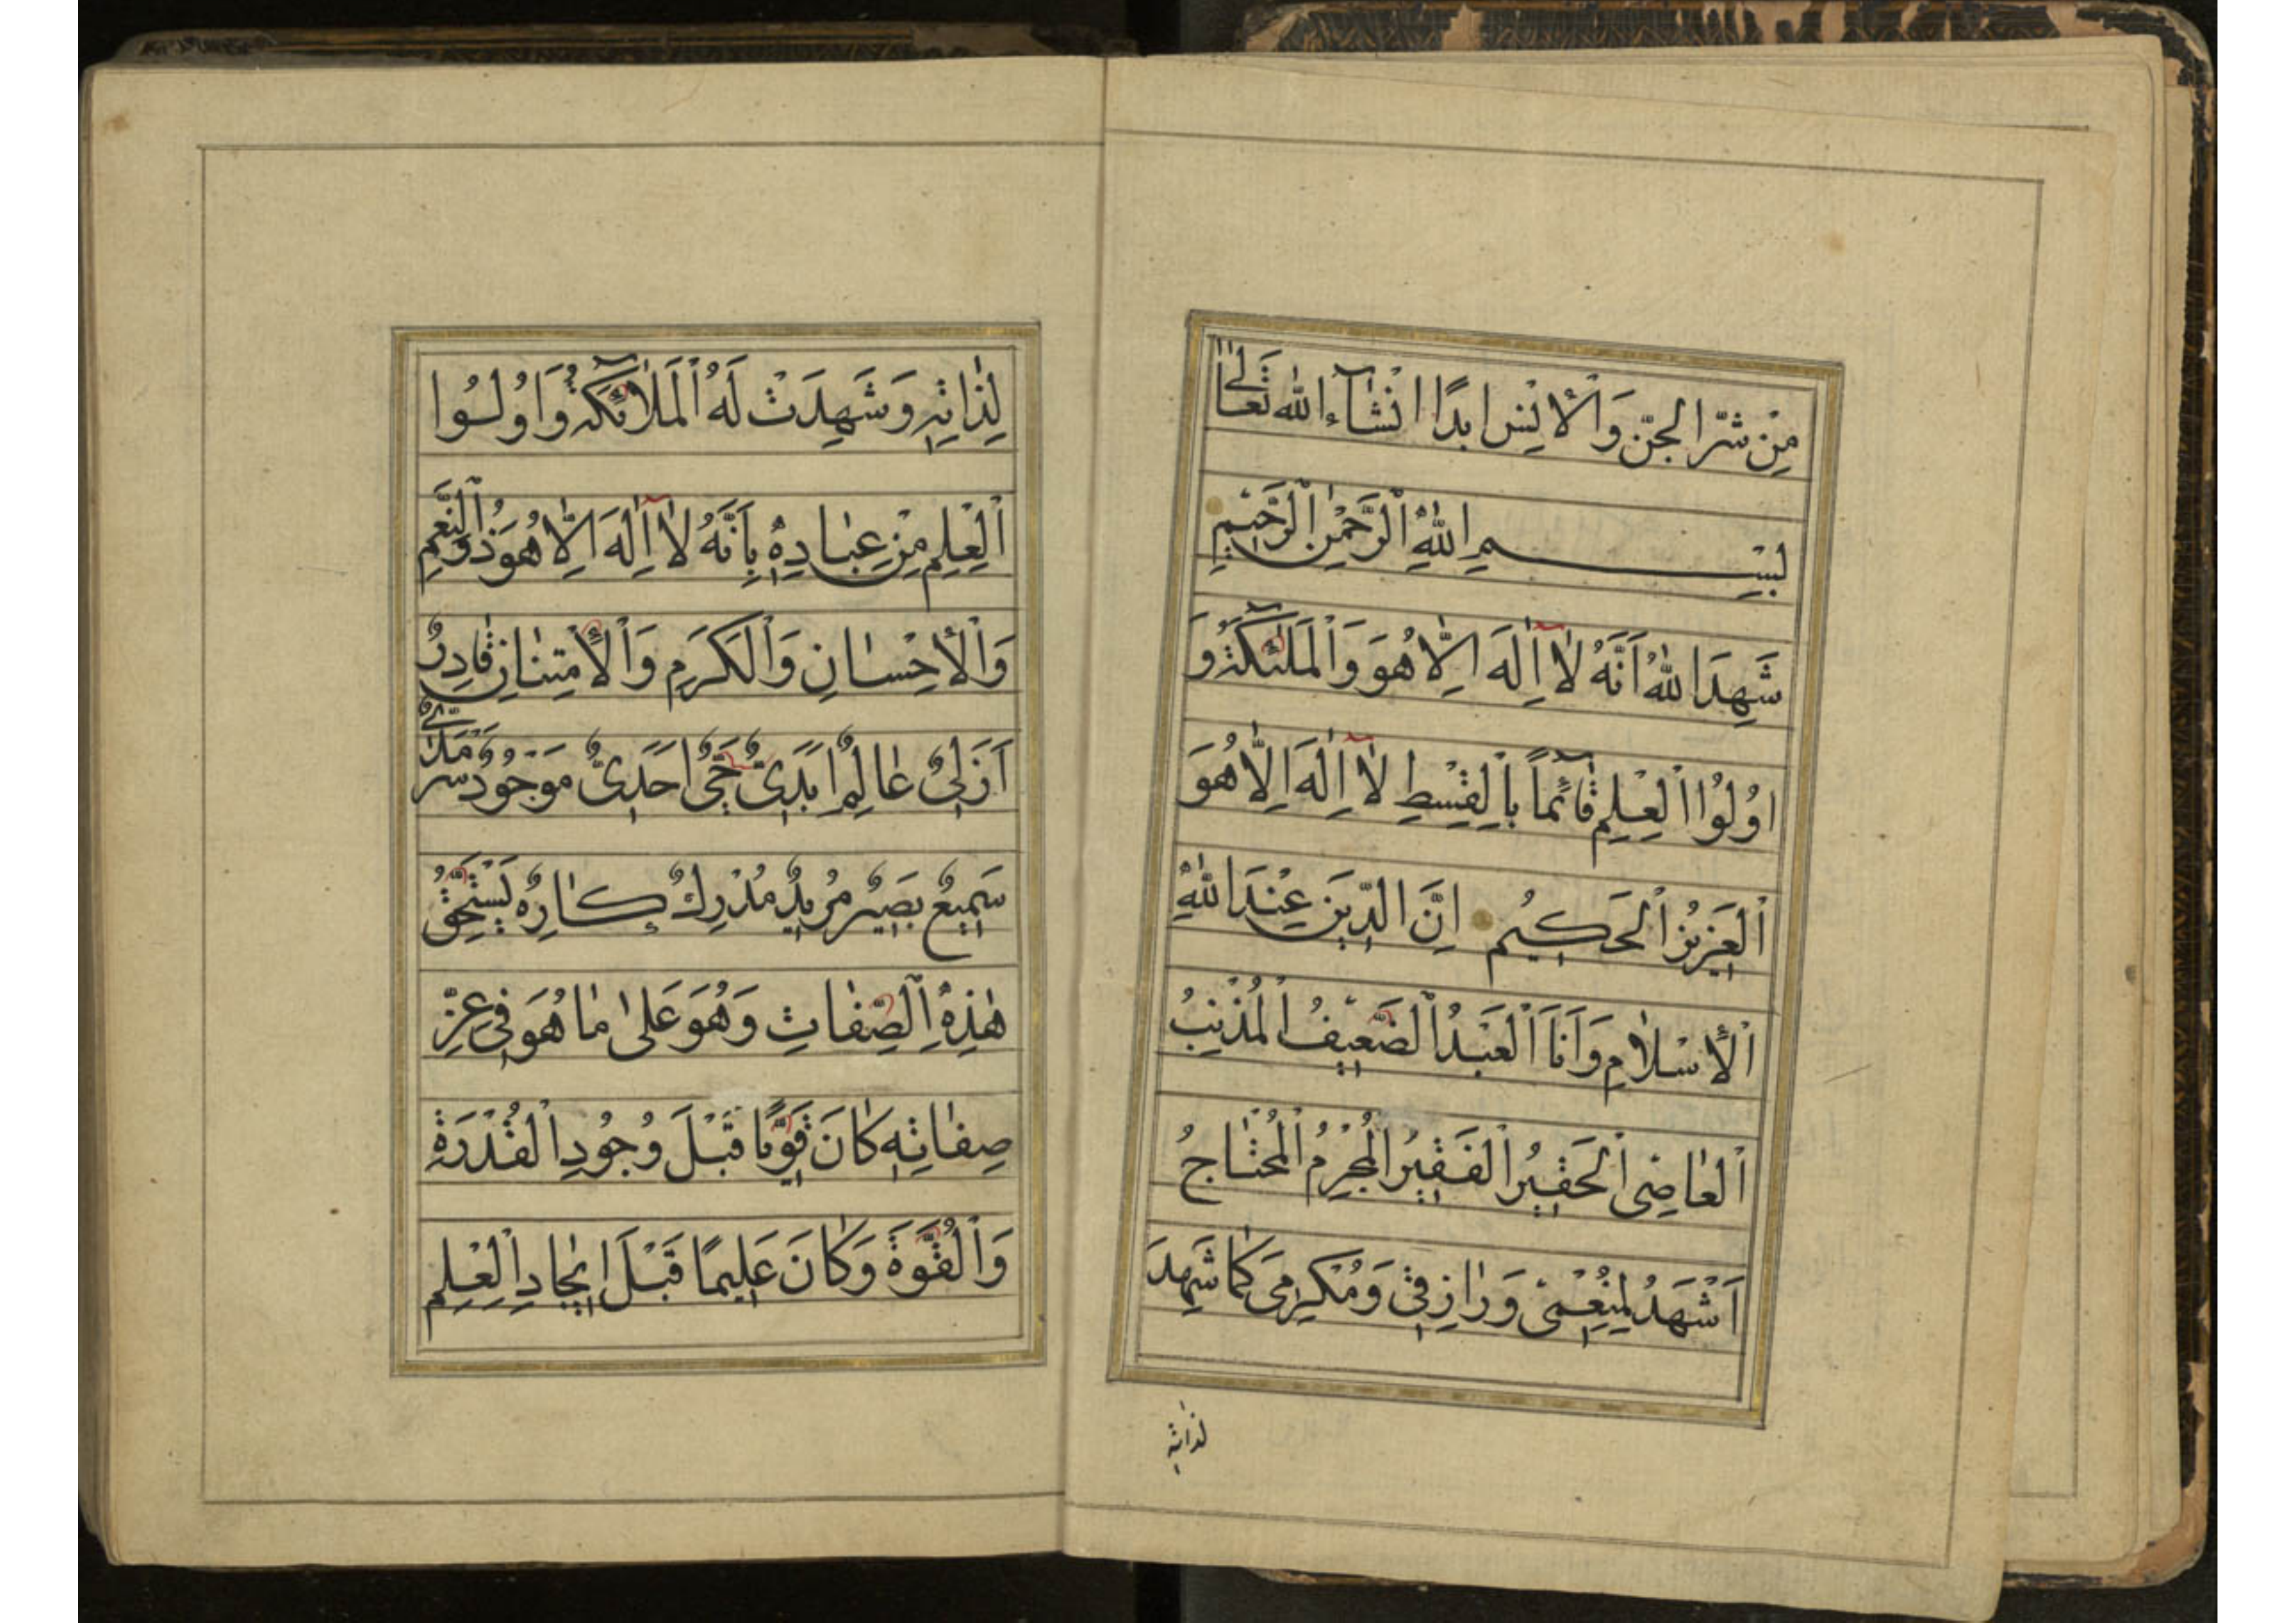 مِنْ شَرِّ الْجِنِّ وَالْاِنْسِ اَبَدًا اِنْشَآءَ اللّٰه تَعَالٰى
بِسْمِ اللّٰهِ الرَّحْمٰنِ الرَّحِيْمِ
شَهِدَ اللّٰهُ اَنَّهُ لٰٓا اِلٰهَ اِلَّا هُوَ وَالْمَلٰٓئِكَةُ وَ
اُولُوا الْعِلْمِ قٰٓائِمًا بِالْقِسْطِ لٰٓا اِلٰهَ اِلَّا هُوَ
الْعَزِيزُ الْحَكِيْمُ اِنَّ الدِّيْنَ عِنْدَ اللّٰهِ
الْاِسْلَامِ وَاَنَا الْعَبْدُ الضَّعِيْفُ الْمُذْنِبُ
الْعَاصِى الْحَقِيْرُ الْفَقِيْرُ الْمُجْرِمُ الْمُحْتَاجُ
اَشْهَدُ لِمُنْعِمِى وَرَازِقِى وَمُكْرِمِى كَمَا شَهِدَ
لذاته
لِذَاتِهِ وَشَهِدَتْ لَهُ الْمَلَآئِكَةُ وَاُولُوا
الْعِلْمِ مِنْ عِبَادِهِ بِاَنَّهُ لٰٓا اِلٰهَ اِلَّا هُوَ ذُو النِّعَمِ
وَالْاِحْسَانِ وَالْكَرَمِ وَالْاِمْتِنَانِ قَادِرٌ
اَزَلِىٌّ عَالِمٌ اَبَدِىٌّ حَىٌّ اَحَدِىٌّ مَوْجُودٌ سَرْمَدِىٌّ
سَمِيعٌ بَصِيْرٌ مُرِيْدٌ مُدْرِكٌ كَارِهٌ يَسْتَحِقُّ
هٰذِهِ الصِّفَاتِ وَهُوَ عَلٰى مَا هُوَ فِى عِزِّ
صِفَاتِهِ كَانَ قَوِيًّا قَبْلَ وُجُودِ الْقُدْرَةِ
وَالْقُوَّةِ وَكَانَ عَلِيمًا قَبْلَ اِيْجَادِ الْعِلْمِ